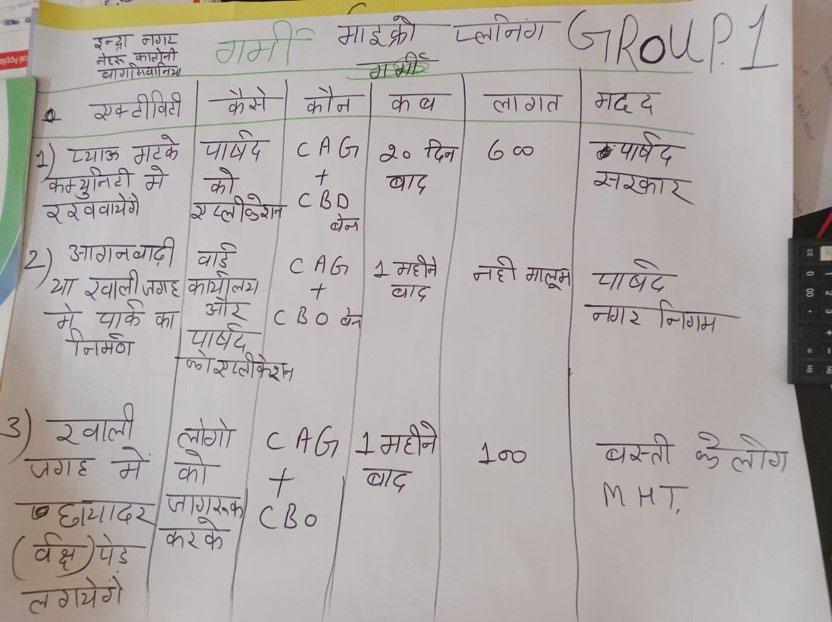 इन्द्रा नगर
नेहरू कालोनी
बागमिवानिया
गर्मी माईक्रो प्लनिंग GROUP.1
गर्मी
एक्टीविटी कैसे कौन कब लागत मदद
1) प्याऊ मटके पार्षद CAG 20 दिन 600 पार्षद
कम्युनिटी मे को + बाद सरकार
रखवायेंगे एप्लीकेशन CBD
बेन
2) आगनवाढ़ी वार्ड CAG 1 महीने नही मालूम पार्षद
या खाली जगह कार्यालय + बाद नगर निगम
मे पार्क का और CBO बेन
निर्माण पार्षद
को एप्लीकेशन
3) खाली लोगो CAG 1 महीने 100 बस्ती के लोग
जगह में को + बाद MHT.
छायादर जागरूक CBO
(र्वक्ष) पेड़ करके
लगायेगे